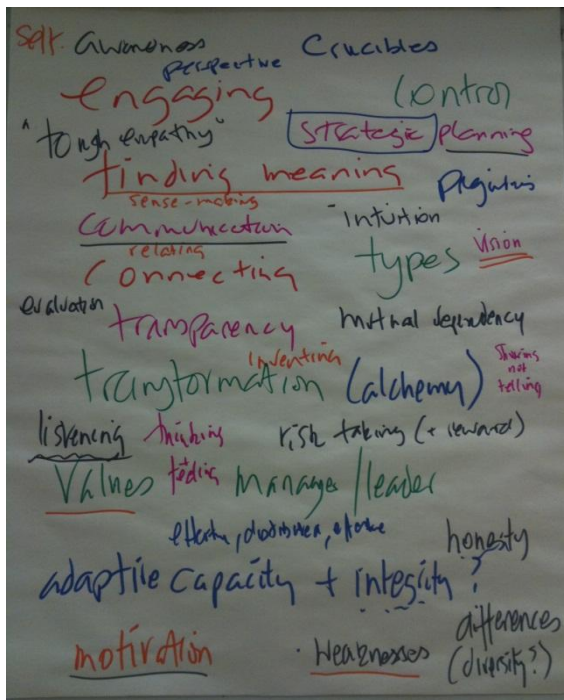 Self. awareness Crucibles
perspective
engaging control
"tough empathy" strategic planning
finding meaning
sense-making
communication intuition
relating types vision
connecting
evaluation transparency mutual dependency
inventing
transformation (alchemy) sharing
not
telling
listening thinking risk taking (+ reward)
values feeling manager/leader
honesty
adaptive capacity + integrity?
differences
motivation · weaknesses (diversity?)